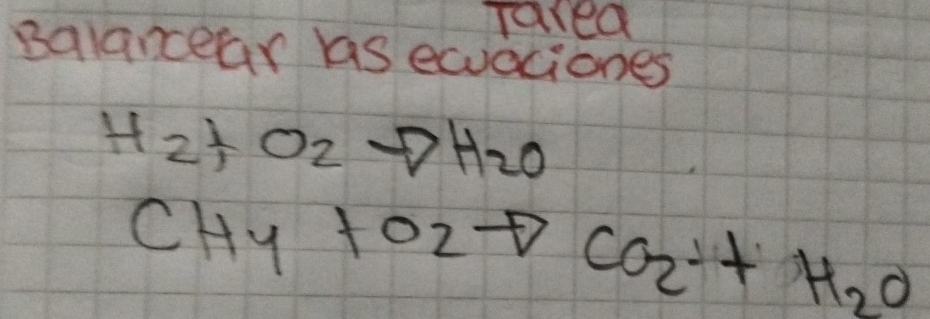 Tarea
Balancear las ecuaciones
H2+ O2 → H2O
CH4 + O2 → CO2 + H2O